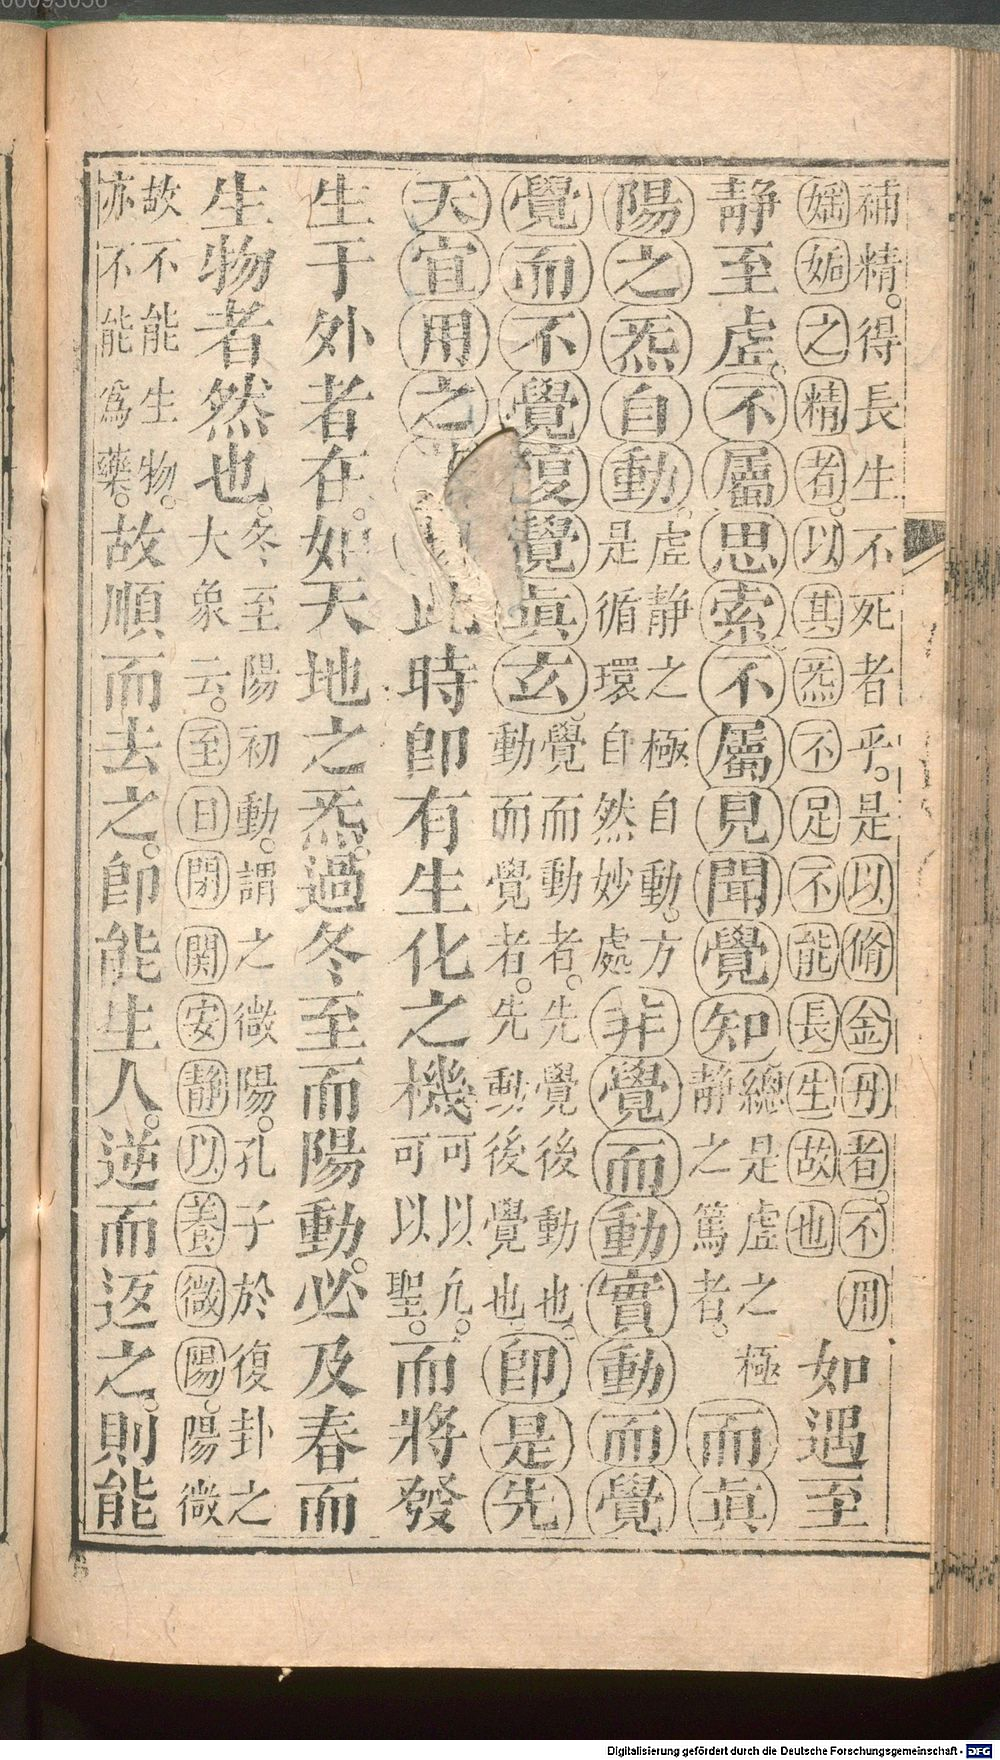 補精。得長生不死者乎。是以脩金丹者。不用
婬姤之精者。以其炁不足不能長生故也
如遇至
靜至虛。不屬思索。不屬見聞覺知
總是虛之極
靜之篤者。
而真
陽之炁自動
虛靜之極自動。方
是循環自然妙處
非覺而動實動而覺
覺而不覺復覺真玄。
覺而動者。先覺後動也。
動而覺者。先動後覺也。
即是先
天宜用之
此時即有生化之機
可以凢。
可以聖。
而將發
生于外者在。如天地之炁。過冬至而陽動。必及春而
生物者然也。
冬至陽初動。謂之微陽。孔子於復卦之
大象云。至日閉關安靜以養微陽。陽微
故不能生物。
亦不能爲藥。
故順而去之。即能生人。逆而返之。則能
Digitalisierung gefördert durch die Deutsche Forschungsgemeinschaft - DFG